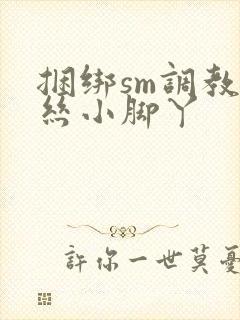 捆绑sm調教
丝小脚丫
許你一世莫憂